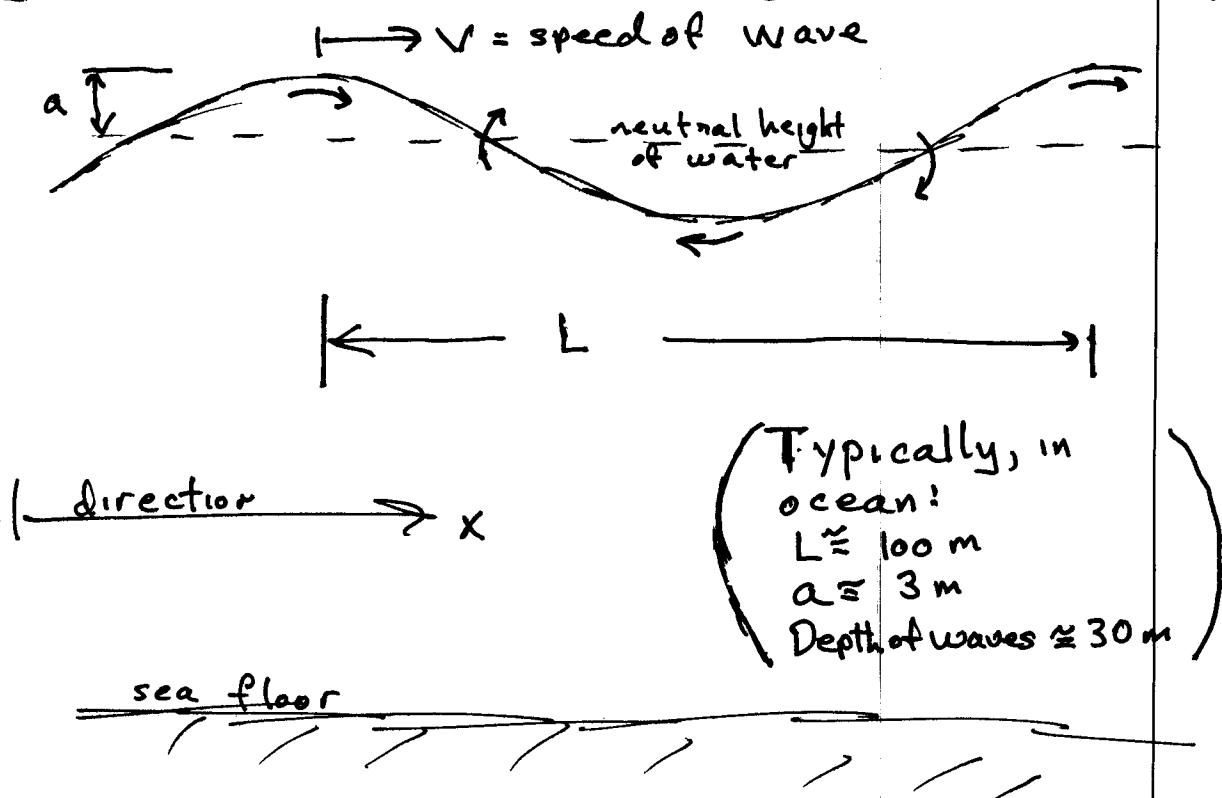 V = speed of wave
a
neutral height
of water
L
direction
x
(Typically, in
ocean:
L ≅ 100 m
a ≅ 3 m
Depth of waves ≅ 30 m)
sea floor